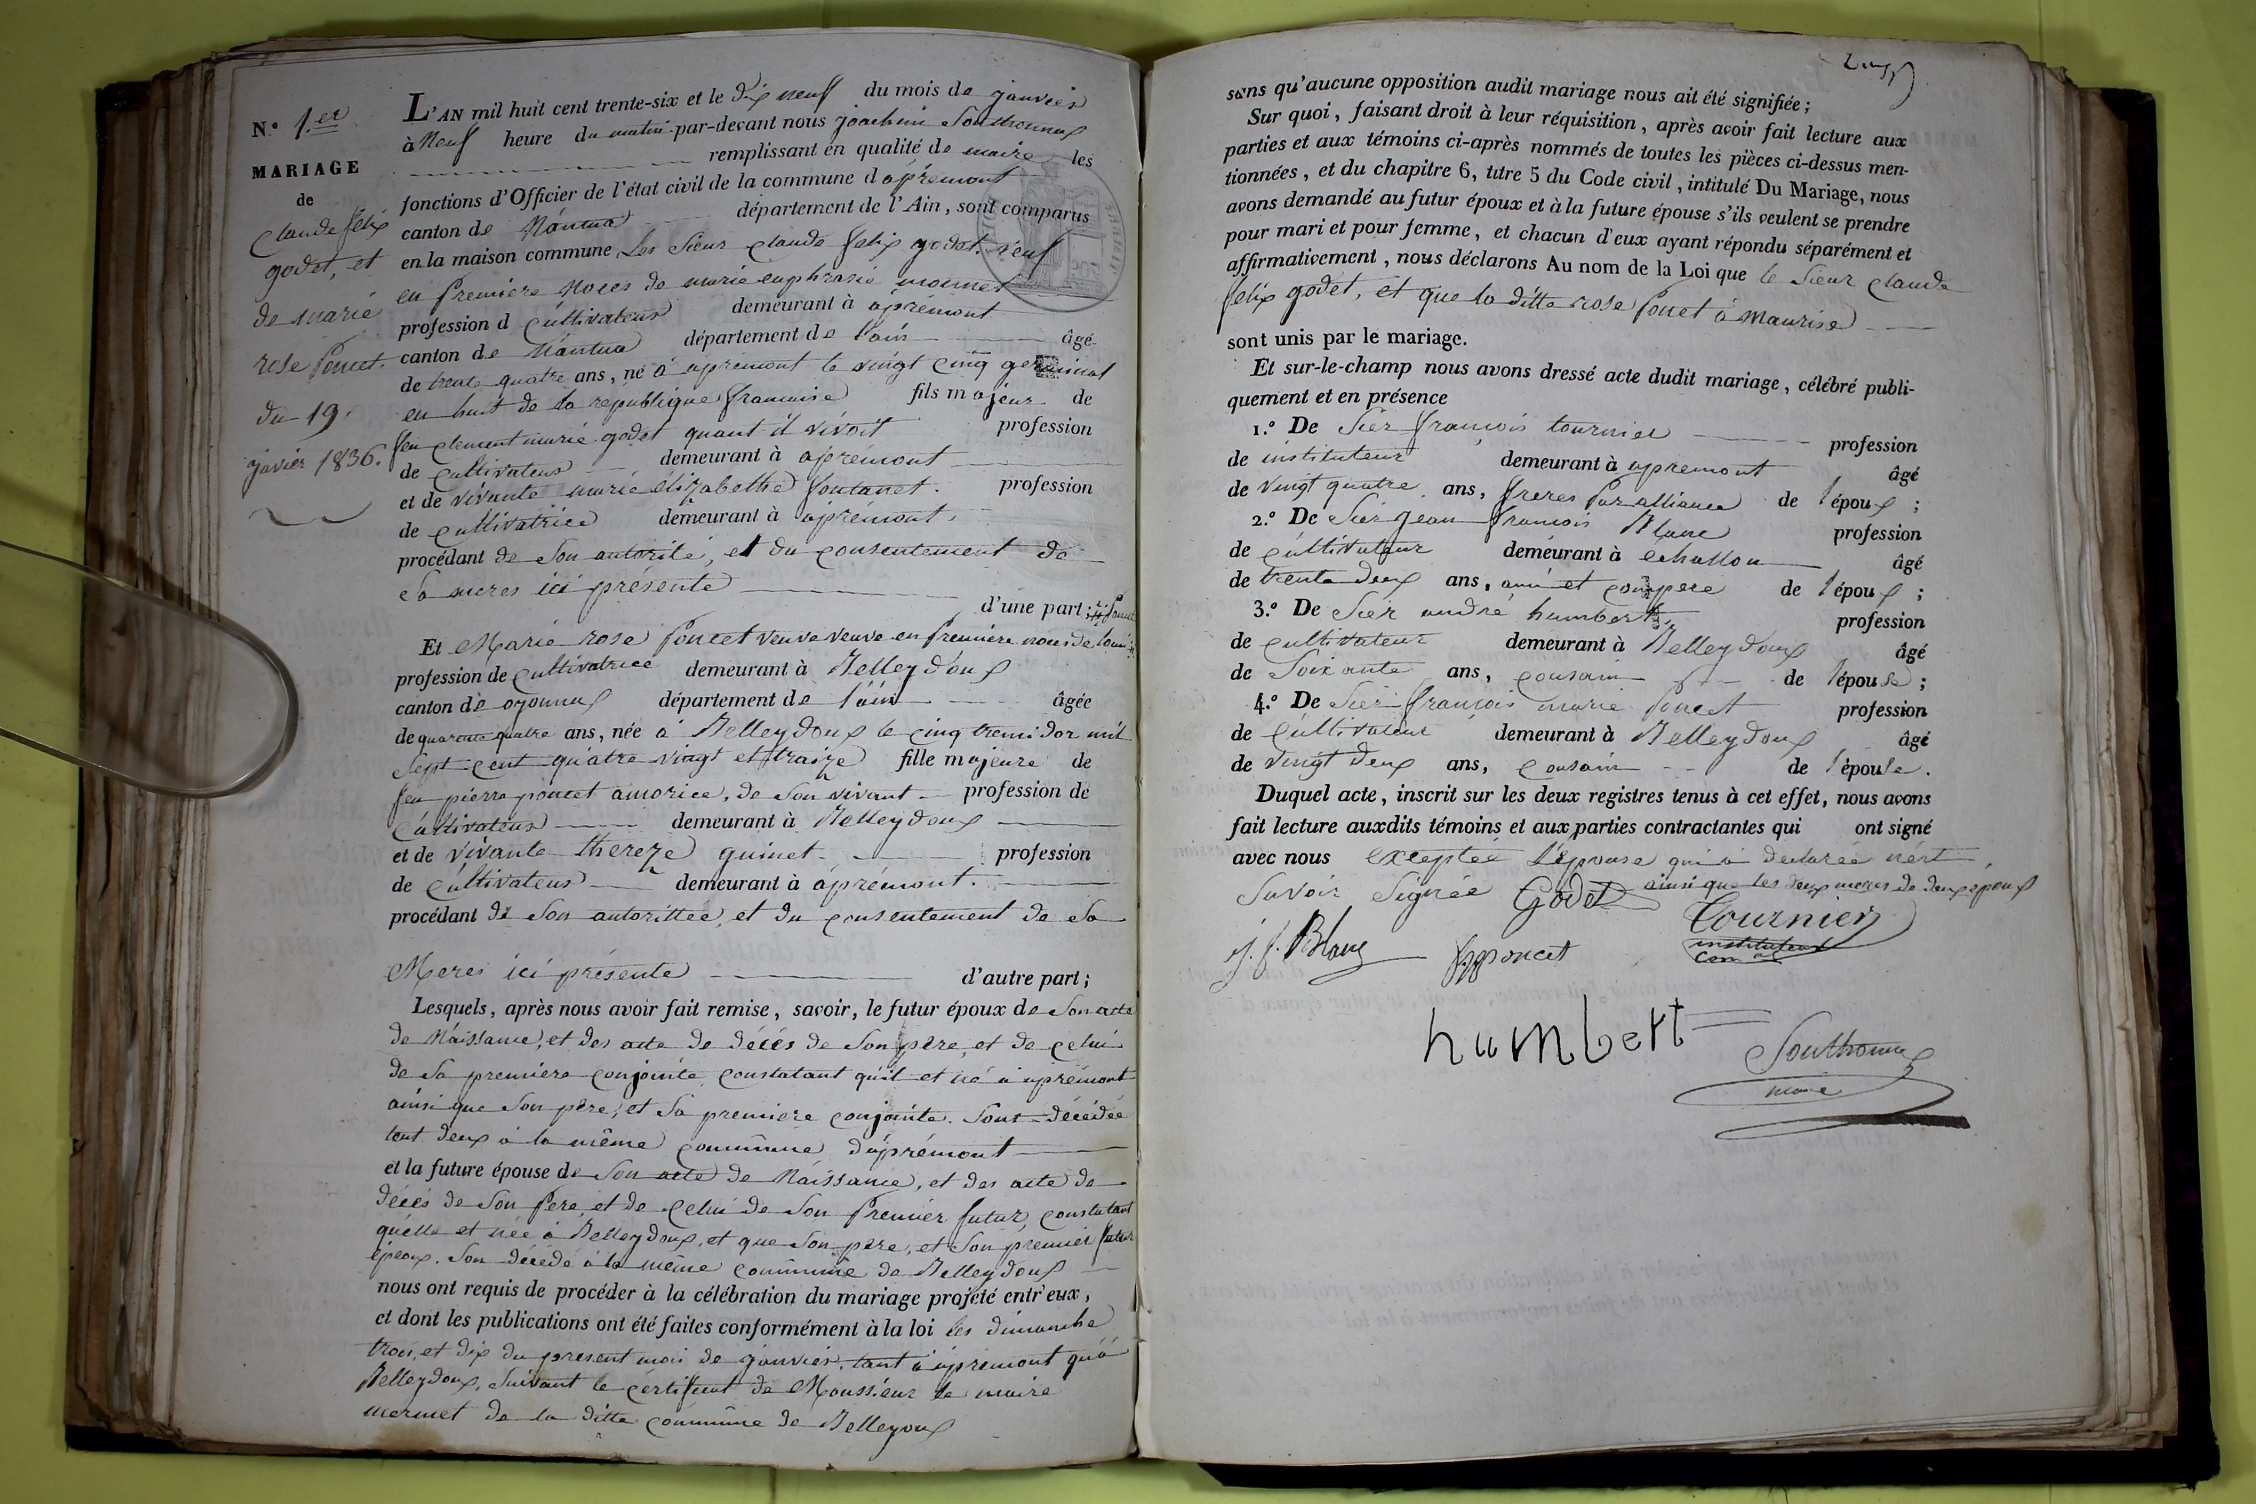 N.° 1.er
MARIAGE
de
Claude félix
godet, et
de marie
rose Poncet.
du 19.
janvier 1836.
L'AN mil huit cent trente-six et le dix neuf du mois de janvier
à Neuf heure du matin par-devant nous joachim Southonnax
remplissant en qualité de maire les
fonctions d'Officier de l'état civil de la commune d'apremont
canton de Nantua département de l'Ain, sont comparus
en la maison commune Les Sieur Claude felix godet, veuf
en premiere Noces de marie euphrasie mermet
profession d Cultivateur demeurant à apremont
canton de Nantua département de l'ain âgé
de trente quatre ans, né à apremont le vingt cinq germinal
en huit de la republique francaise fils majeur de
feu clement marie godet quant il vivoit profession
de Cultivateur demeurant à apremont
et de vivante marie élizabethe fontanet. profession
de Cultivatrice demeurant à apremont.
procédant de Son autorité, et du consentement de
Sa meres ici présente
d'une part;
Et Marie rose Poncet veuve veuve en Premiere noces de
profession de Cultivatrice demeurant à Belleydoux
canton de oyonnax département de l'ain âgée
de quarente quatre ans, née à Belleydoux le cinq tremidor mil
Sept cent quatre vingt et traize fille majeure de
feu pierre poncet amorice, de Son vivant profession de
Cultivateur demeurant à Belleydoux
et de vivante thereze guinet. profession
de Cultivateur demeurant à apremont.
procédant de Son autorittée et du consentement de Sa
Meres ici présente d'autre part;
Lesquels, après nous avoir fait remise, savoir, le futur époux de Son acte
de Naissance, et des acte de décés de Son père, et de celui
de Sa premiere conjointe, constatant qu'il et né a apremont
ainsi que Son père, et Sa premiere conjointe. Sont décédée
tout deux à la même commune d'apremont
et la future épouse de Son acte de Naissance, et des acte de
décés de Son Pere, et de Celui de Son Premier futur, constatant
quélle et née à Belleydoux, et que Son père, et Son premier futur
époux. Son décédé à la même commune de Belleydoux
nous ont requis de procéder à la célébration du mariage projeté entr'eux,
et dont les publications ont été faites conformément à la loi les dimanche
trois, et dix du present mois de janvier, tant à apremont qu'à
Belleydoux, Suivant le certificat de Monssieur le maire
mermet de la ditte commune de Belleyoux
sans qu'aucune opposition audit mariage nous ait été signifiée;
Sur quoi, faisant droit à leur réquisition, après avoir fait lecture aux
parties et aux témoins ci-après nommés de toutes les pièces ci-dessus men-
tionnées, et du chapitre 6, titre 5 du Code civil, intitulé Du Mariage, nous
avons demandé au futur époux et à la future épouse s'ils veulent se prendre
pour mari et pour femme, et chacun d'eux ayant répondu séparément et
affirmativement, nous déclarons Au nom de la Loi que le Sieur Claude
felix godet, et que la ditte rose Poncet à Maurise
sont unis par le mariage.
Et sur-le-champ nous avons dressé acte dudit mariage, célébré publi-
quement et en présence
1.° De Sier françois tournier profession
de instituteur demeurant à apremont âgé
de vingt quatre ans, freres Par alliance de l'époux;
2.° De Sier Jean françois Blanc profession
de Cultivateur demeurant à echallon âgé
de trente deux ans, ami et compere de l'époux;
3.° De Sier andré humbert profession
de cultivateur demeurant à Belleydoux âgé
de Soixante ans, cousain de l'épouse;
4.° De Sier françois marie Poncet profession
de Cultivateur demeurant à Belleydoux âgé
de vingt deux ans, cousain de l'épouse.
Duquel acte, inscrit sur les deux registres tenus à cet effet, nous avons
fait lecture auxdits témoins et aux parties contractantes qui ont signé
avec nous exceptée l'épouse qui à declarée nért
Savoir Signée Godet ainsi que les deux meres de deux époux
Tournier
instituteur
j. f. Blanc
fm poncet
humbert
Southonnax
maire